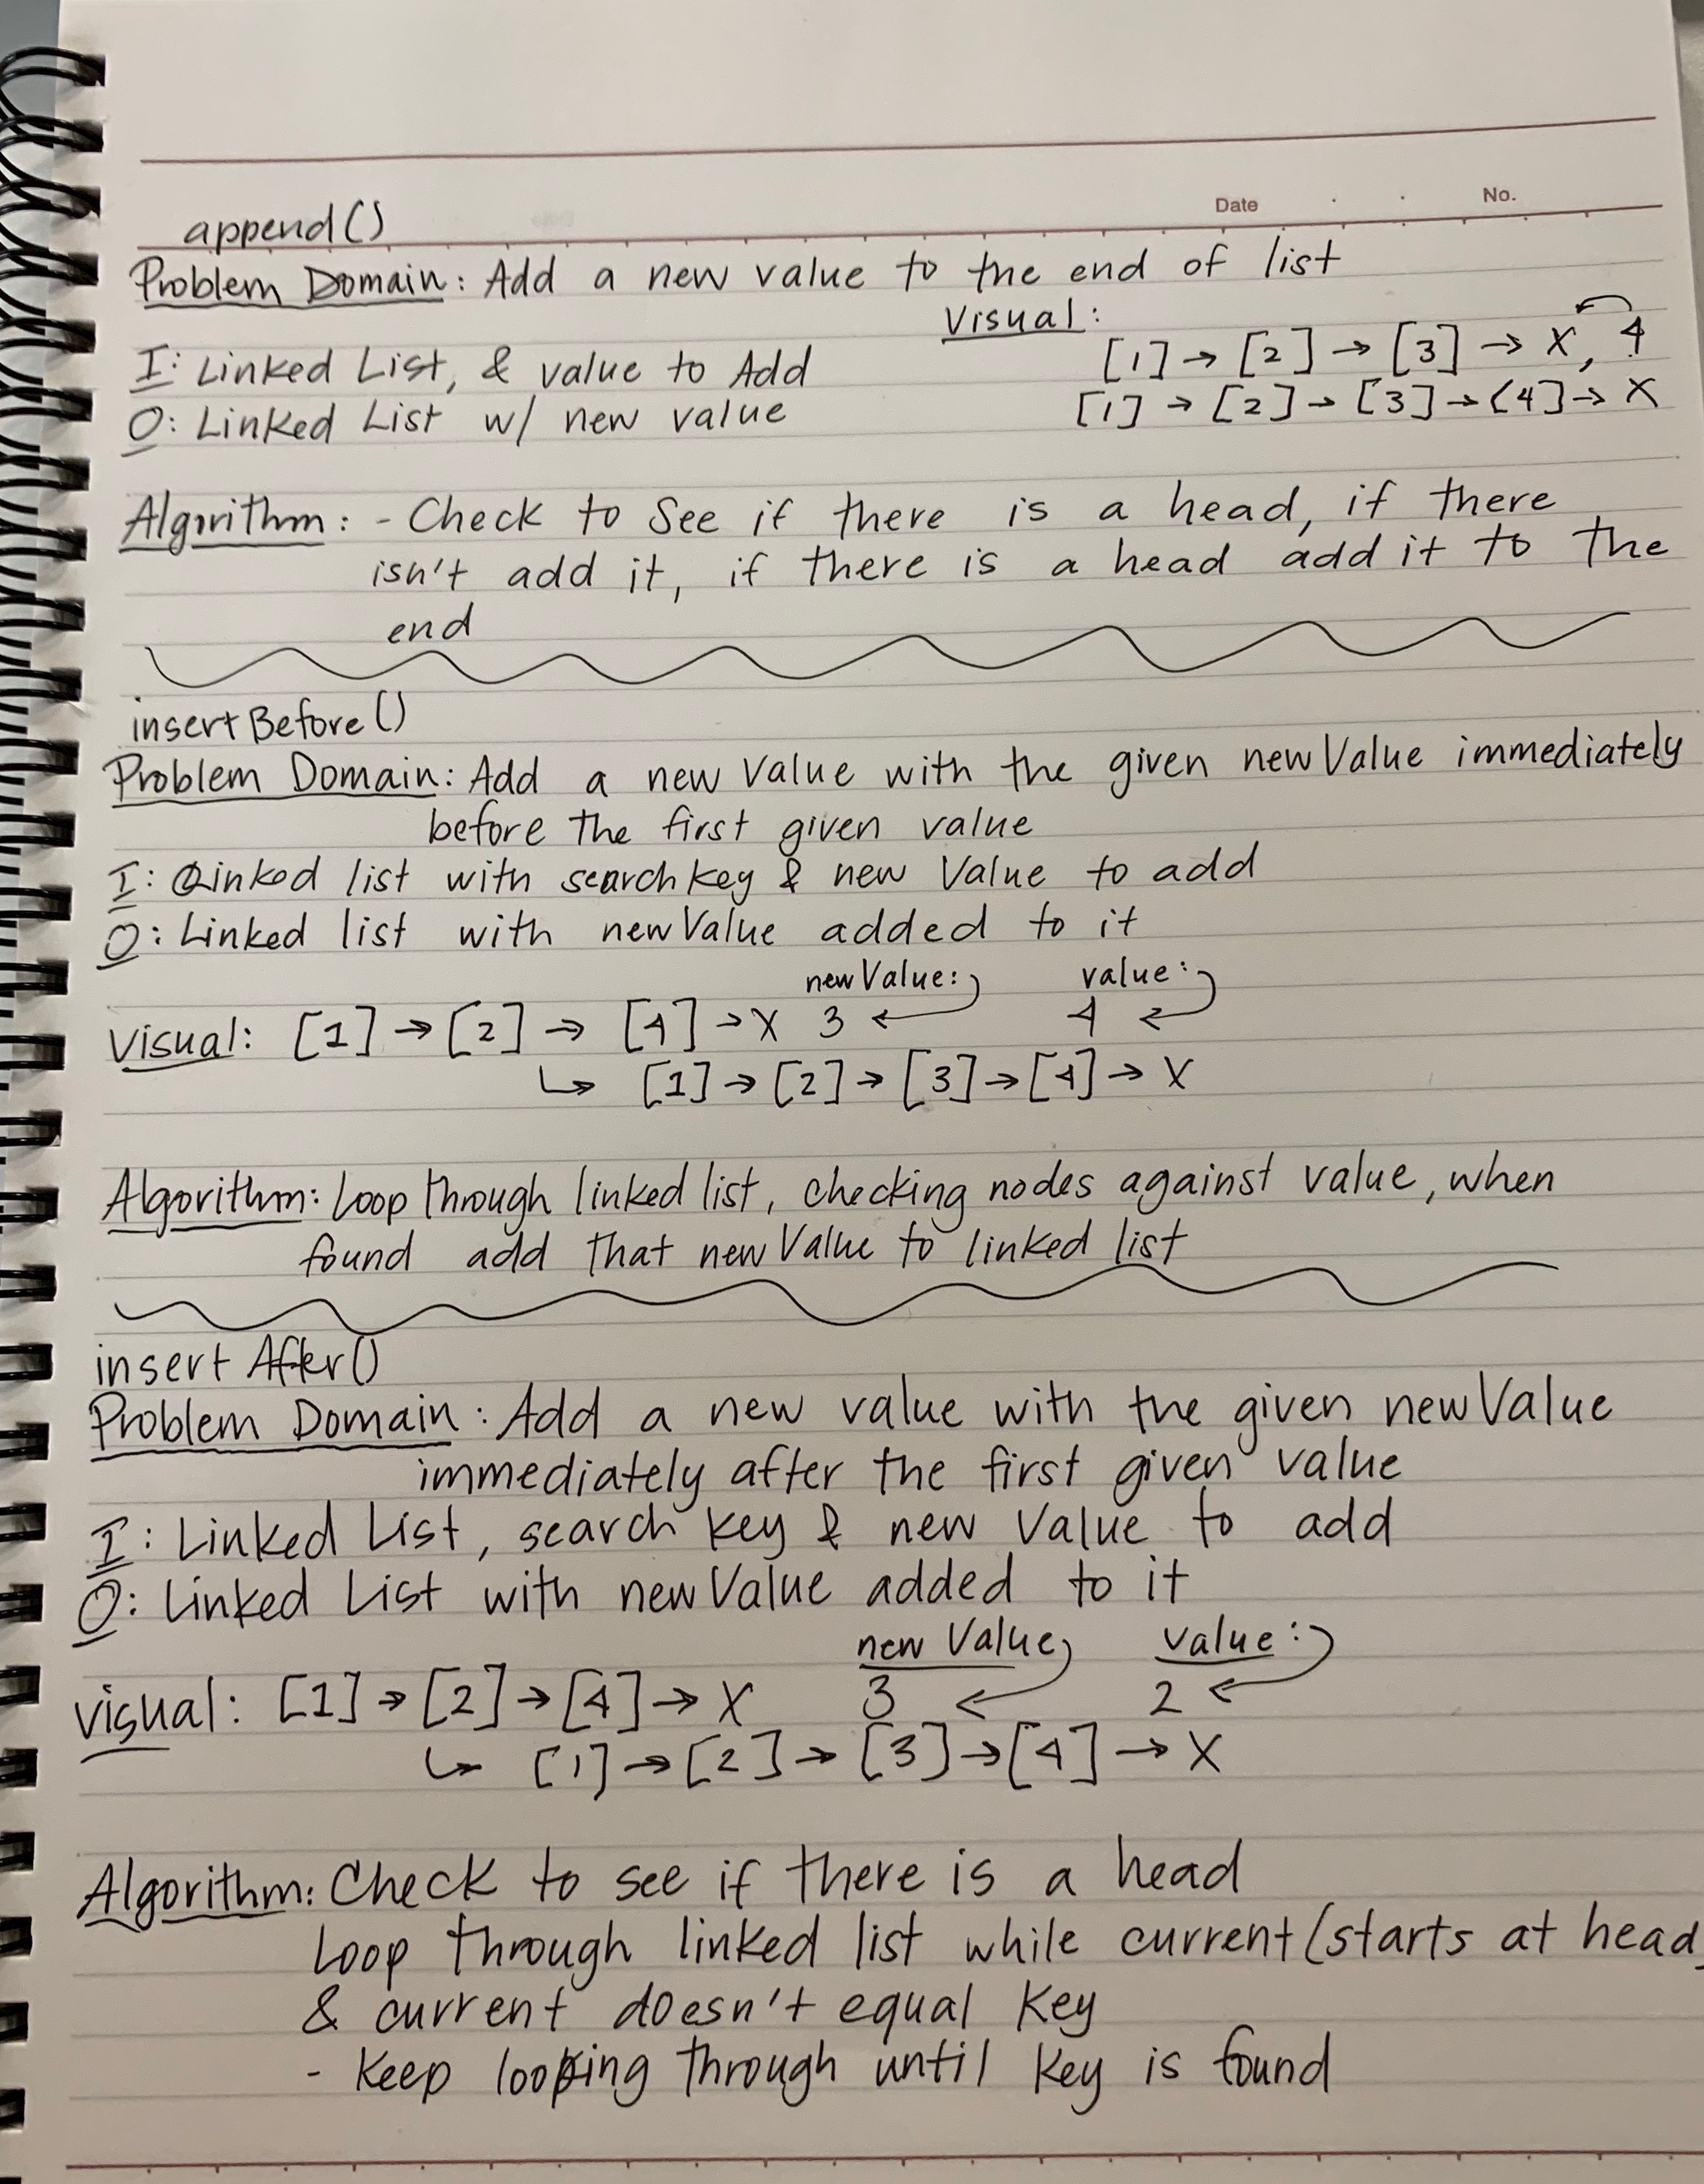 Date . . No.
append()
Problem Domain: Add a new value to the end of list
Visual:
[1] → [2] → [3] → X, 4
I: Linked List, & value to Add
[1] → [2] → [3] → [4] → X
O: Linked List w/ new value
Algorithm: - Check to See if there is a head, if there
isn't add it, if there is a head add it to the
end
insertBefore()
Problem Domain: Add a new Value with the given newValue immediately
before the first given value
I: Linked list with search key & new Value to add
O: Linked list with newValue added to it
newValue: value:
Visual: [1] → [2] → [4] → X 3 ← 4 ←
↳ [1] → [2] → [3] → [4] → X
Algorithm: Loop through linked list, checking nodes against value, when
found add that newValue to linked list
insertAfter()
Problem Domain: Add a new value with the given newValue
immediately after the first given value
I: Linked List, search key & new Value to add
O: Linked List with newValue added to it
new Value, value:
visual: [1] → [2] → [4] → X 3 ← 2 ←
↳ [1] → [2] → [3] → [4] → X
Algorithm: Check to see if there is a head
Loop through linked list while current (starts at head)
& current doesn't equal Key
- Keep looping through until Key is found